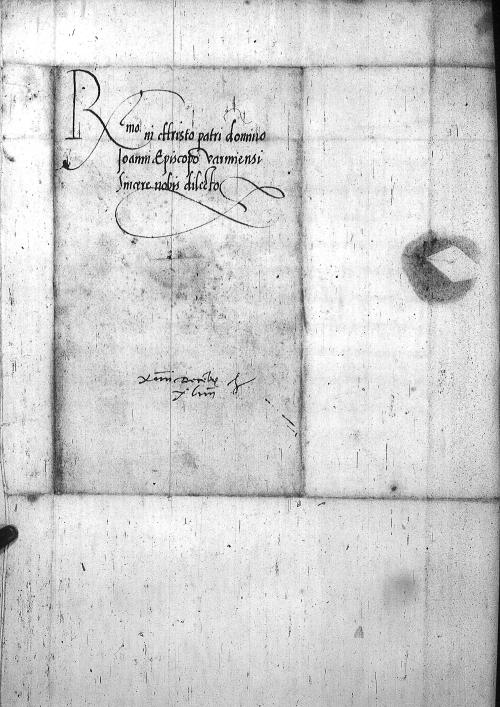 Rmo in Christo patri domino
Ioanni Episcopo varmiensi
Sincere nobis dilecto